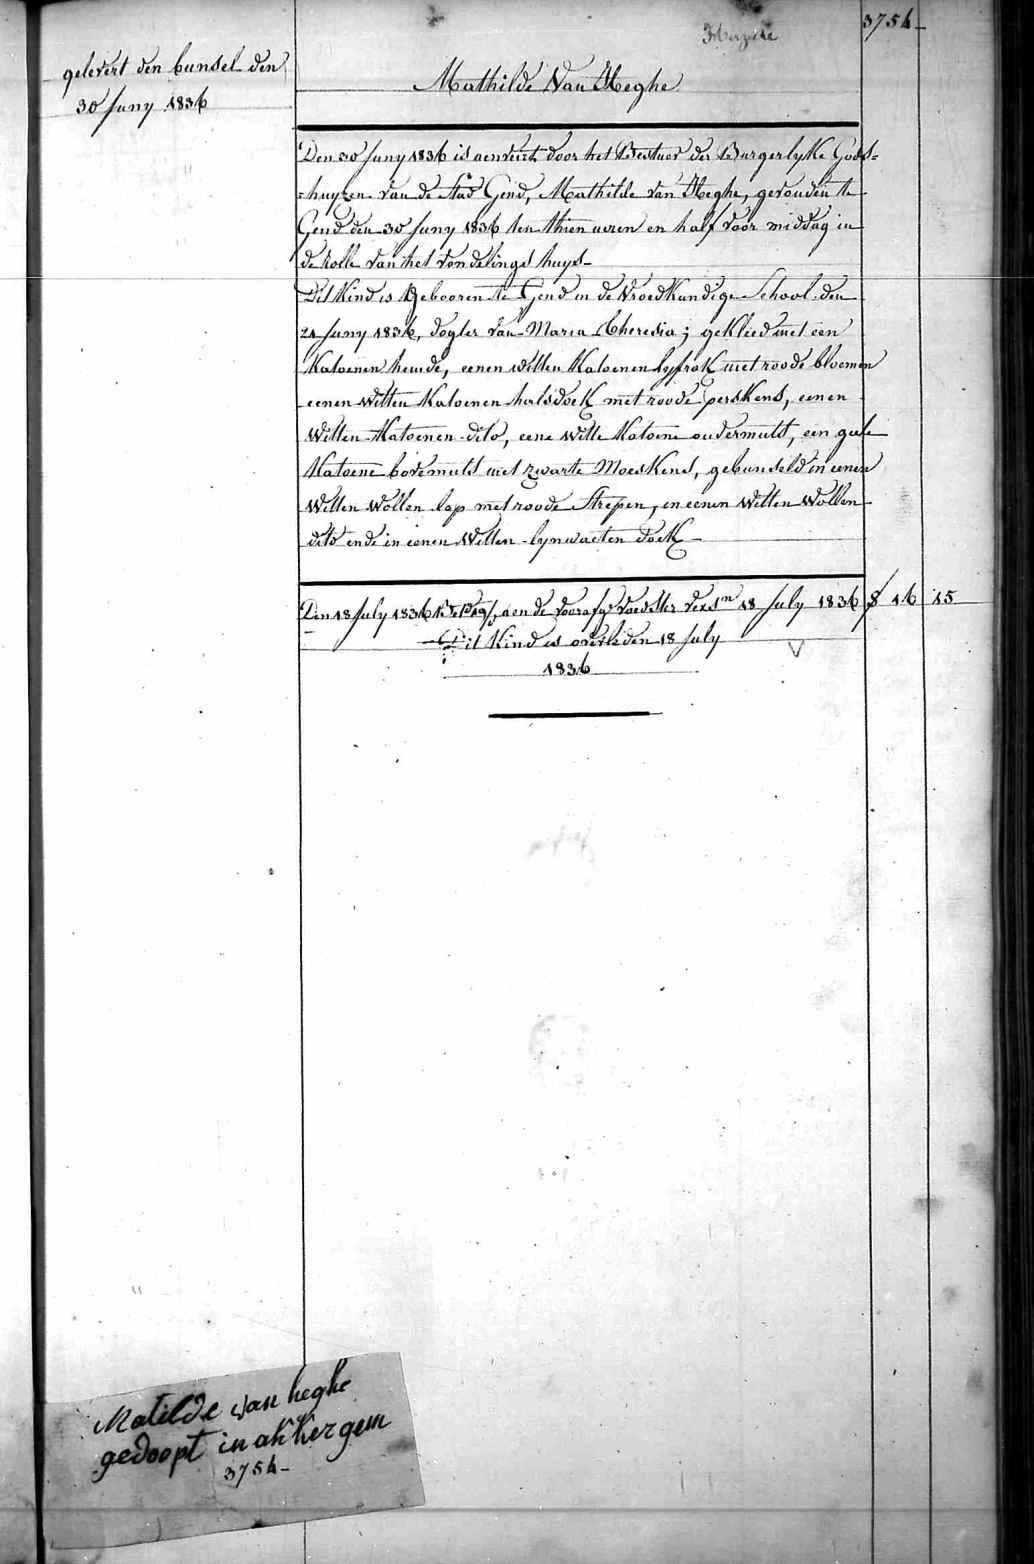 3754
gelevert den bunsel den
30 Juny 1836
Mathilde Van Heghe
Den 30 Juny 1836 is aenveirt door het Bestuer der Burgerlyke Gods=
=huyzen van de Stad Gend, Mathilde Van Heghe, gevonden te
Gend den 30 Juny 1836 ten thien uren en half voor middag in
de rolle van het vondelings huys
Dit Kind is Gebooren te Gend in de Vroedkundige School den
21 Juny 1836, dogter van Maria Theresia; gekleed met een
Katoenen hemde, eenen witten Katoenen lyfrok met roode bloemen
eenen witten Katoenen halsdoek met roode perskens, eenen
witten Katoenen dito, eene witte Katoene ondermuts, een geele
Katoene bovemuts met zwarte Moeskens, gebunseld in eenen
witten Wollen lap met roode Strepen, in eenen Witten Wollen
dito ende in eenen Witten lynwaeten doek
Den 18 July 1836 aen de voorafge voedster 18 July 1836 16 15
Dit Kind is overleden 18 July
1836
Matilde van heghe
gedoopt in akkergem
3754